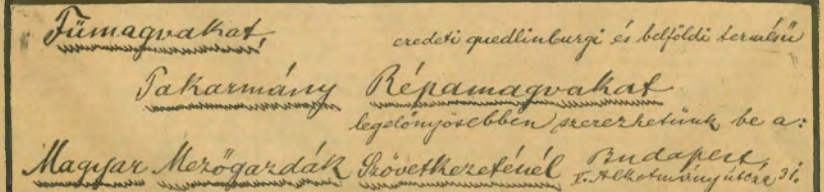 Fűmagvakat,
eredeti quedlinburgi és belföldi termésű
Takarmány Répamagvakat
legelőnyösebben szerezhetünk be a:
Magyar Mezőgazdák Szövetkezeténél Budapest,
V. Alkotmány utcza 31.